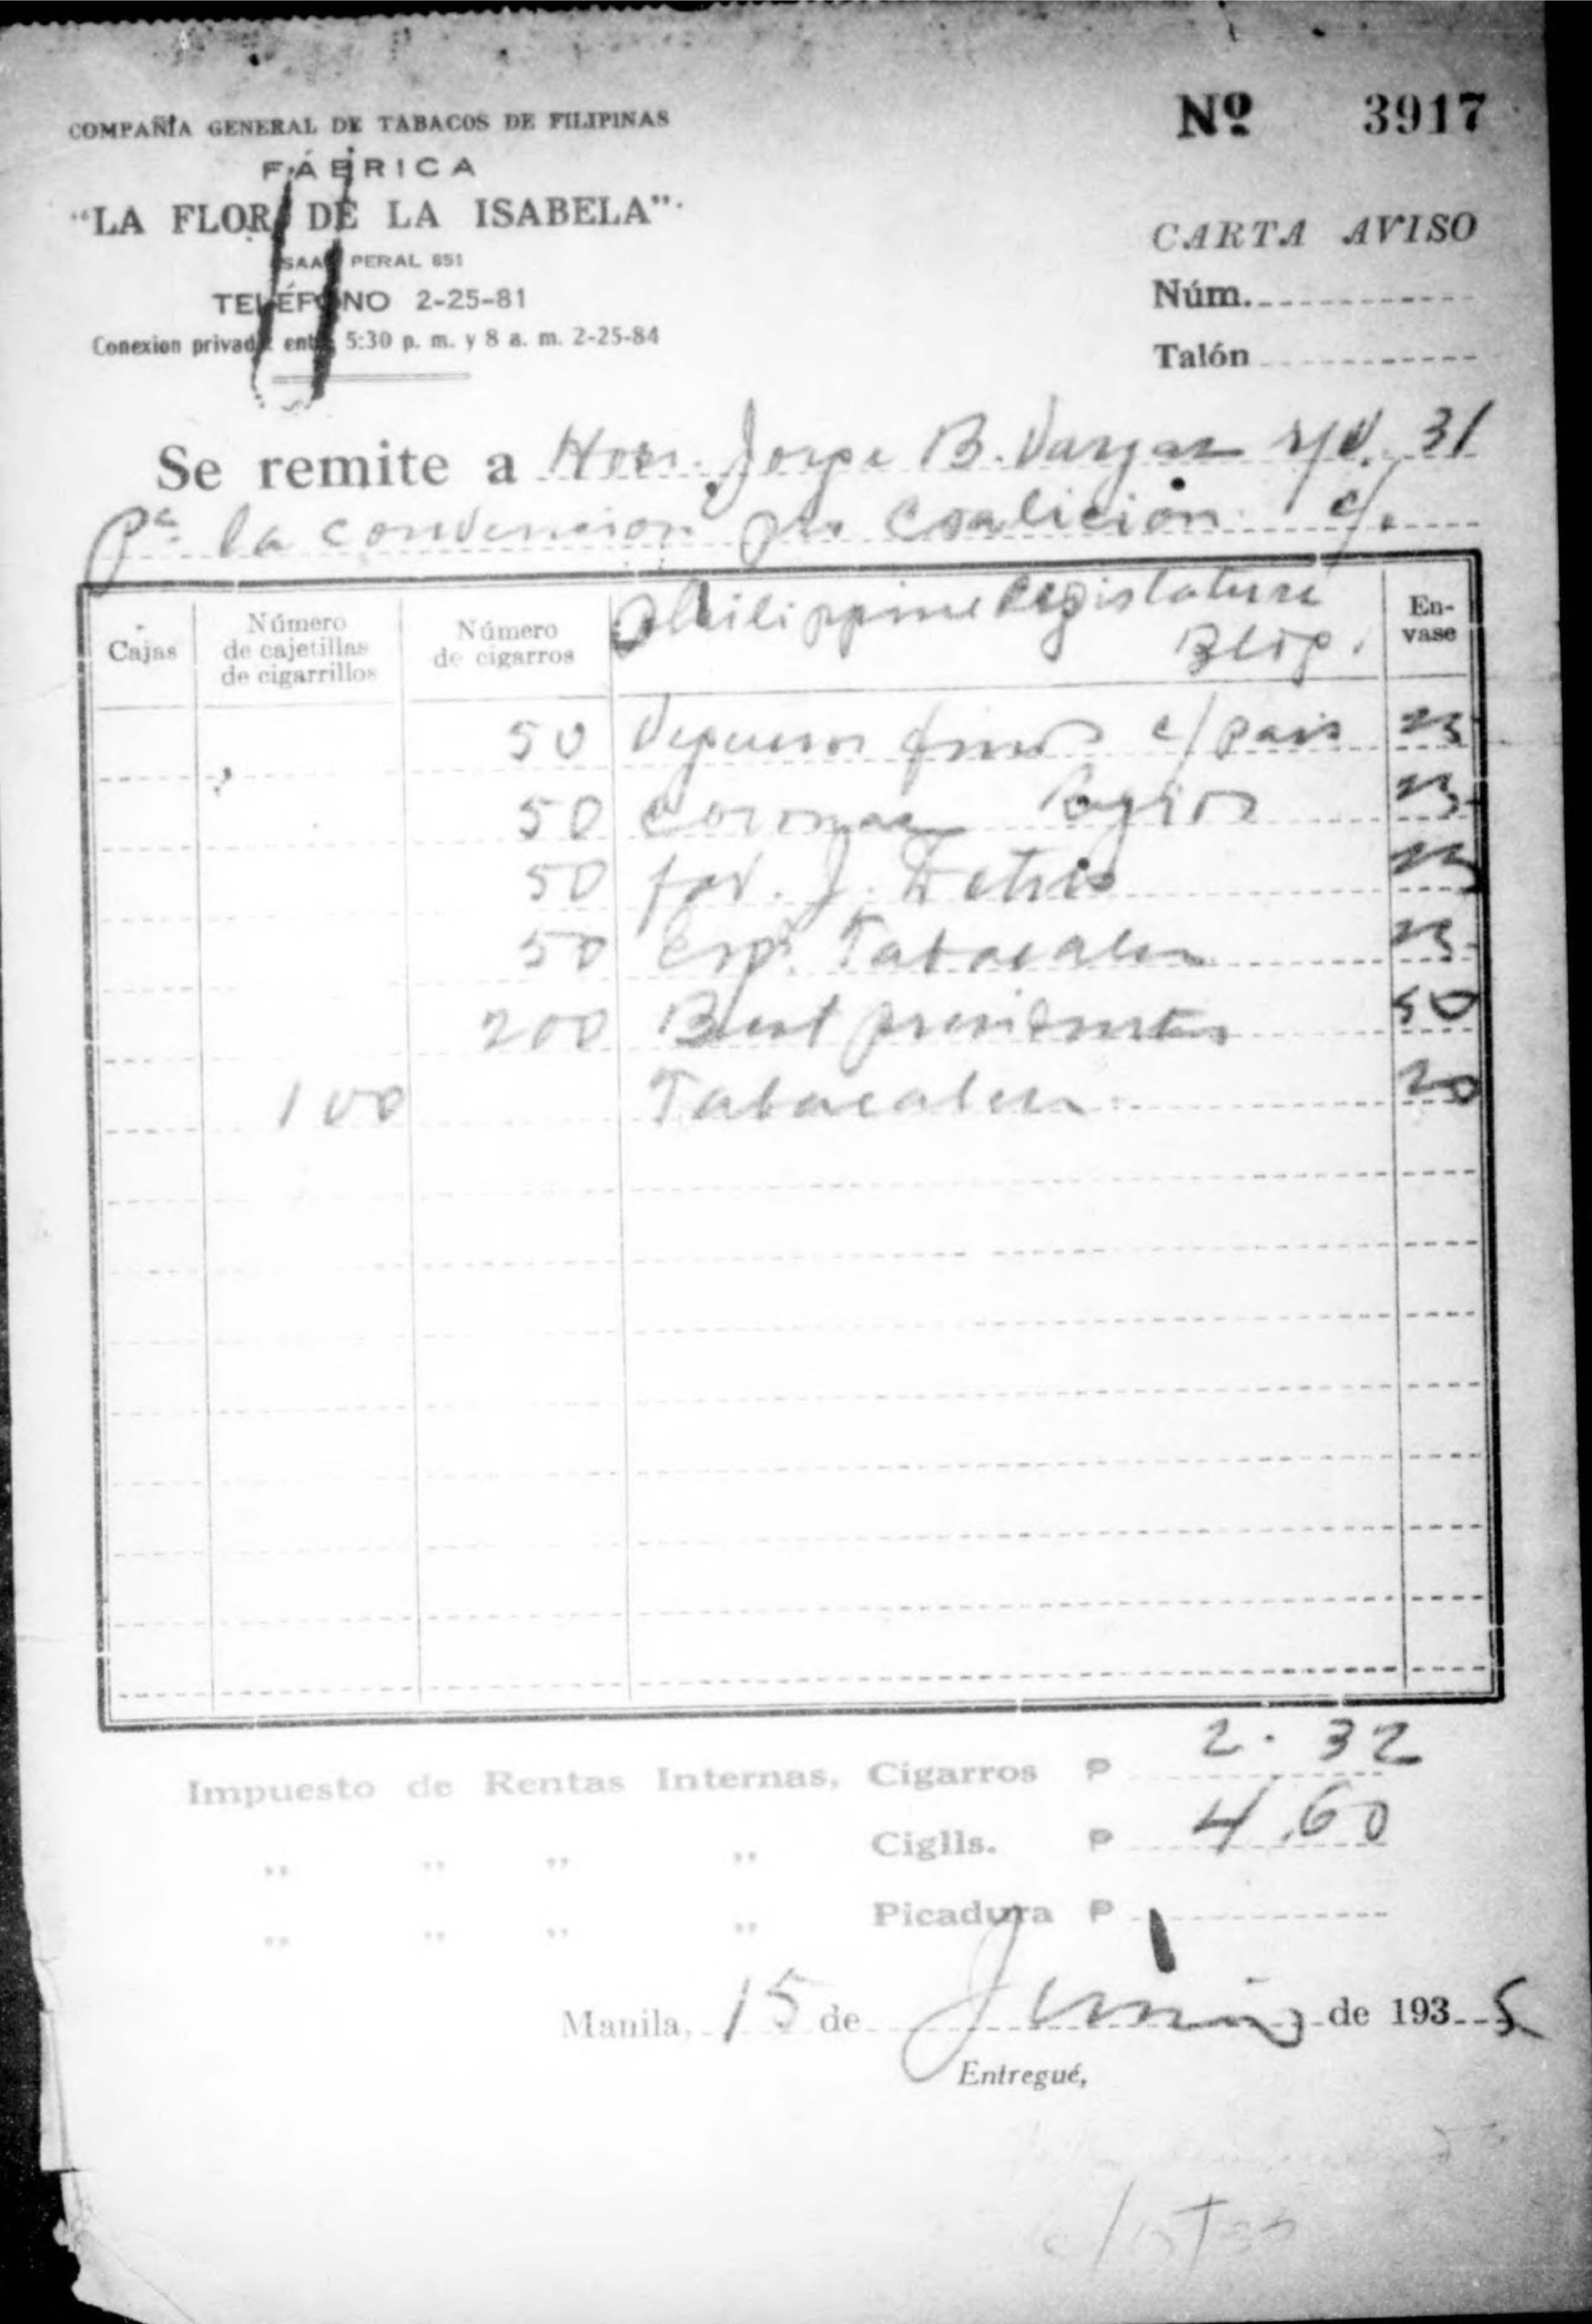 COMPAÑÍA GENERAL DE TABACOS DE FILIPINAS
FÁBRICA
"LA FLOR DE LA ISABELA"
ISAAC PERAL 851
TELÉFONO 2-25-81
Conexion privada entre 5:30 p. m. y 8 a. m. 2-25-84
Nº 3917
CARTA AVISO
Núm.
Talón
Se remite a Hon. Jorge B. Vargas 31
Pa la convencion pro Coalicion c/.
Philippine Legislature
Bldg.
Cajas
Número de cajetillas de cigarrillos
Número de cigarros
En-vase
50 Vegueros finos c/ pais 25
50 Coronas 25
50 fav. J. 25
50 Esp. Tabacalera 25
200 Best presidentes 50
100 Tabacalera 20
Impuesto de Rentas Internas, Cigarros ₱ 2.32
,, ,, ,, ,, Ciglls. ₱ 4.60
,, ,, ,, ,, Picadura ₱
Manila, 15 de Junio de 1935
Entregué,